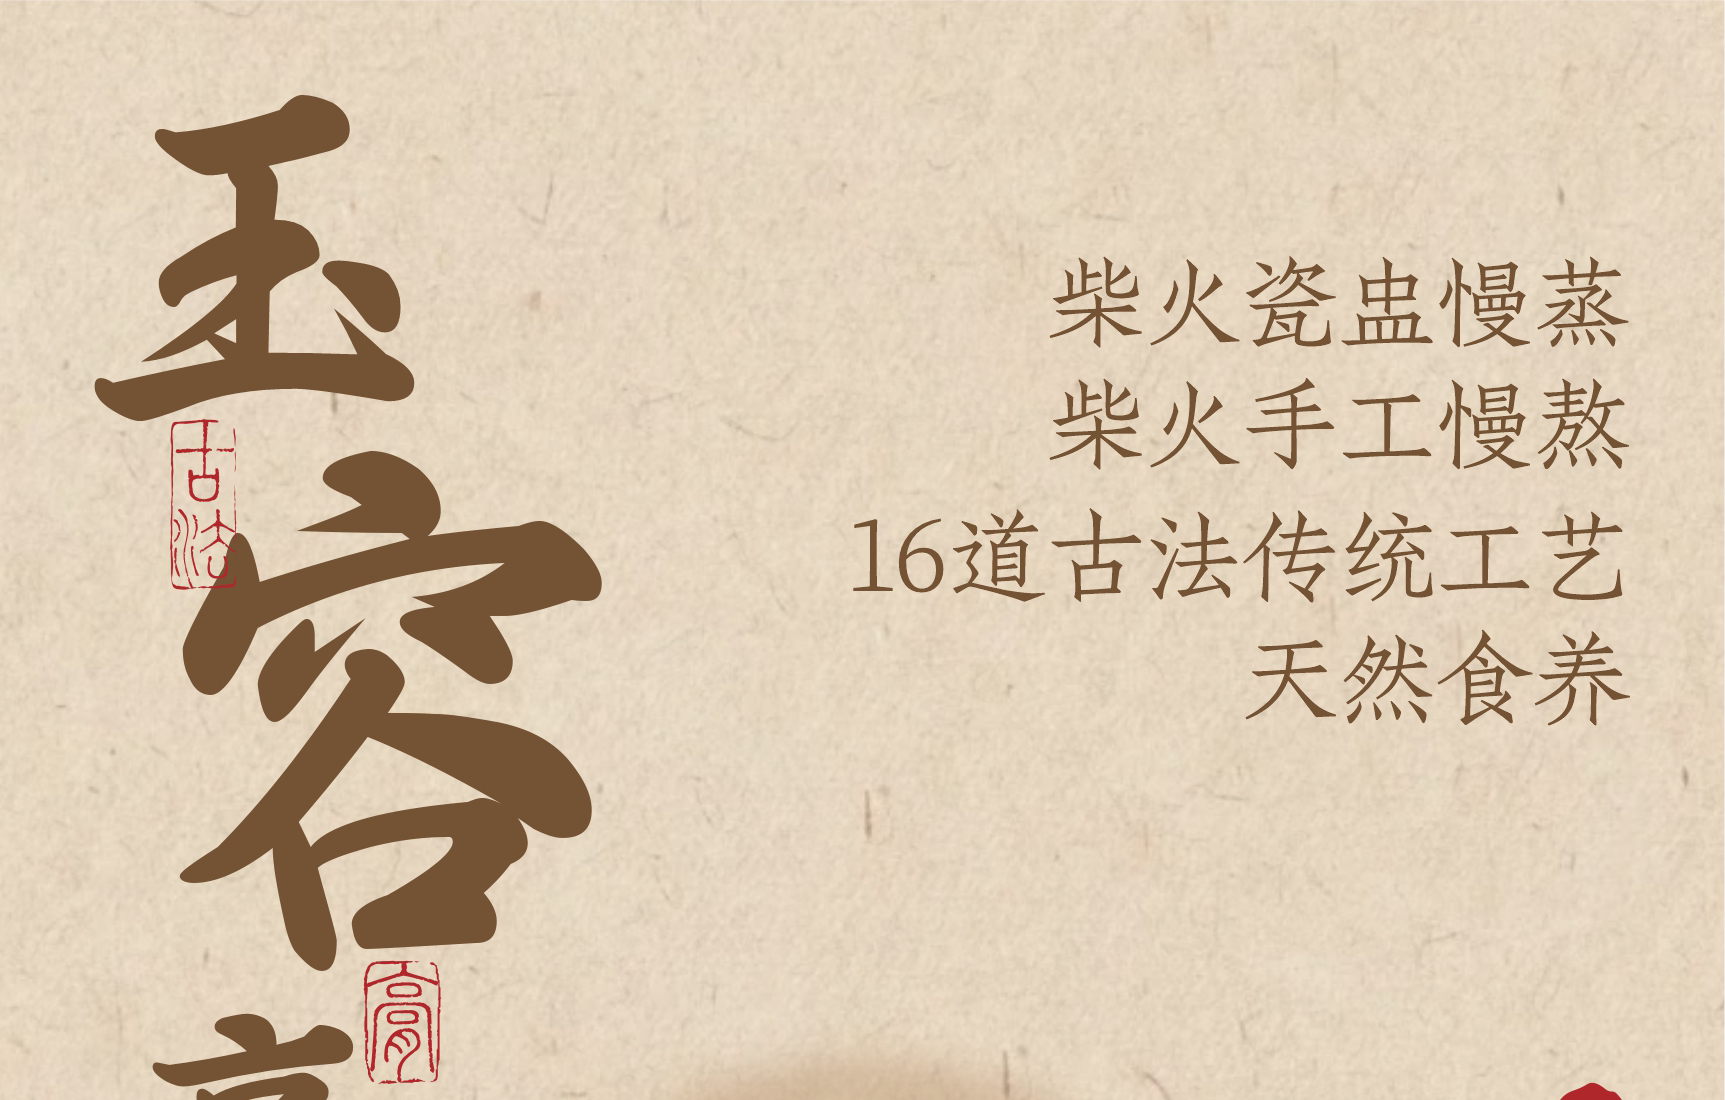 玉容
古法
膏
柴火瓷盅慢蒸
柴火手工慢熬
16道古法传统工艺
天然食养